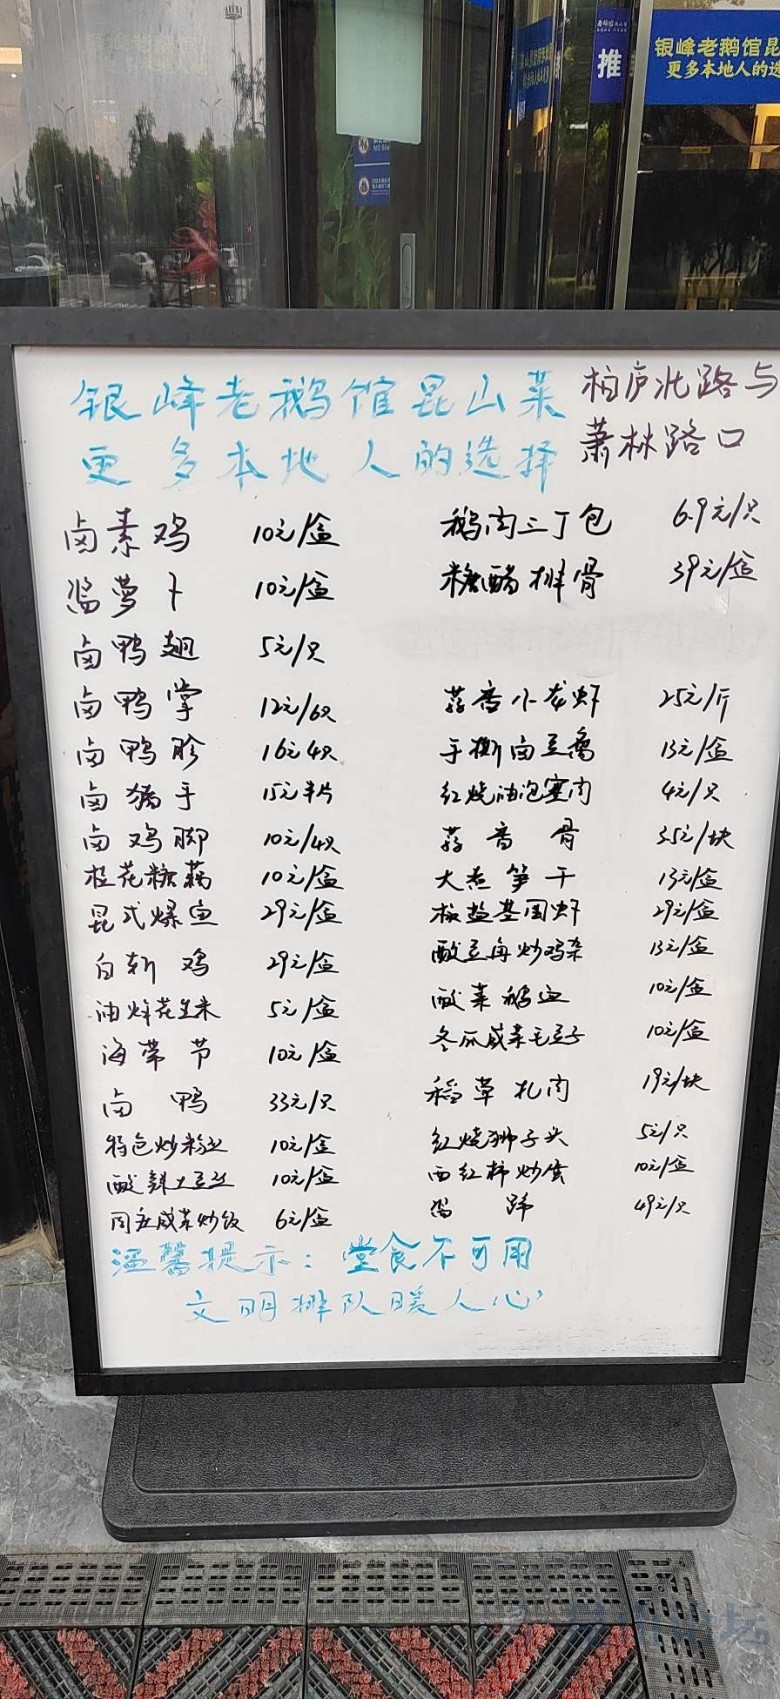 推
银峰老鹅馆昆
更多本地人的选
银峰老鹅馆昆山菜
更多本地人的选择
柏庐北路与
萧林路口
卤素鸡 10元/盒
酱萝卜 10元/盒
卤鸭翅 5元/只
卤鸭掌 12元/6只
卤鸭胗 16元4只
卤猪手 15元半片
卤鸡脚 10元/4只
桂花糖藕 10元/盒
昆式爆鱼 29元/盒
白斩鸡 29元/盒
油炸花生米 5元/盒
海带节 10元/盒
卤鸭 33元/只
特色炒粉丝 10元/盒
酸辣土豆丝 10元/盒
周庄咸菜炒饭 6元/盒
鹅肉三丁包 6.9元/只
糖醋排骨 39元/盒
蒜香小龙虾 25元/斤
手撕卤豆腐 13元/盒
红烧油泡塞肉 4元/只
蒜香骨 3.5元/块
大煮笋干 13元/盒
椒盐基围虾 29元/盒
酸豆角炒鸡杂 13元/盒
酸菜鹅血 10元/盒
冬瓜咸菜毛豆子 10元/盒
稻草扎肉 19元/块
红烧狮子头 5元/只
西红柿炒蛋 10元/盒
蹄 49元/只
温馨提示：堂食不可用
文明排队暖人心